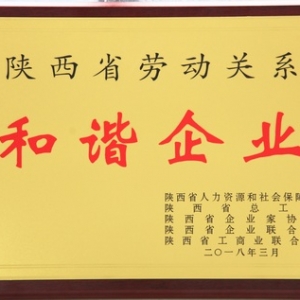 陕西省劳动关系
和谐企业
陕西省人力资源和社会保障
陕西省总工
陕西省企业家协
陕西省企业联合
陕西省工商业联合
二〇一八年三月